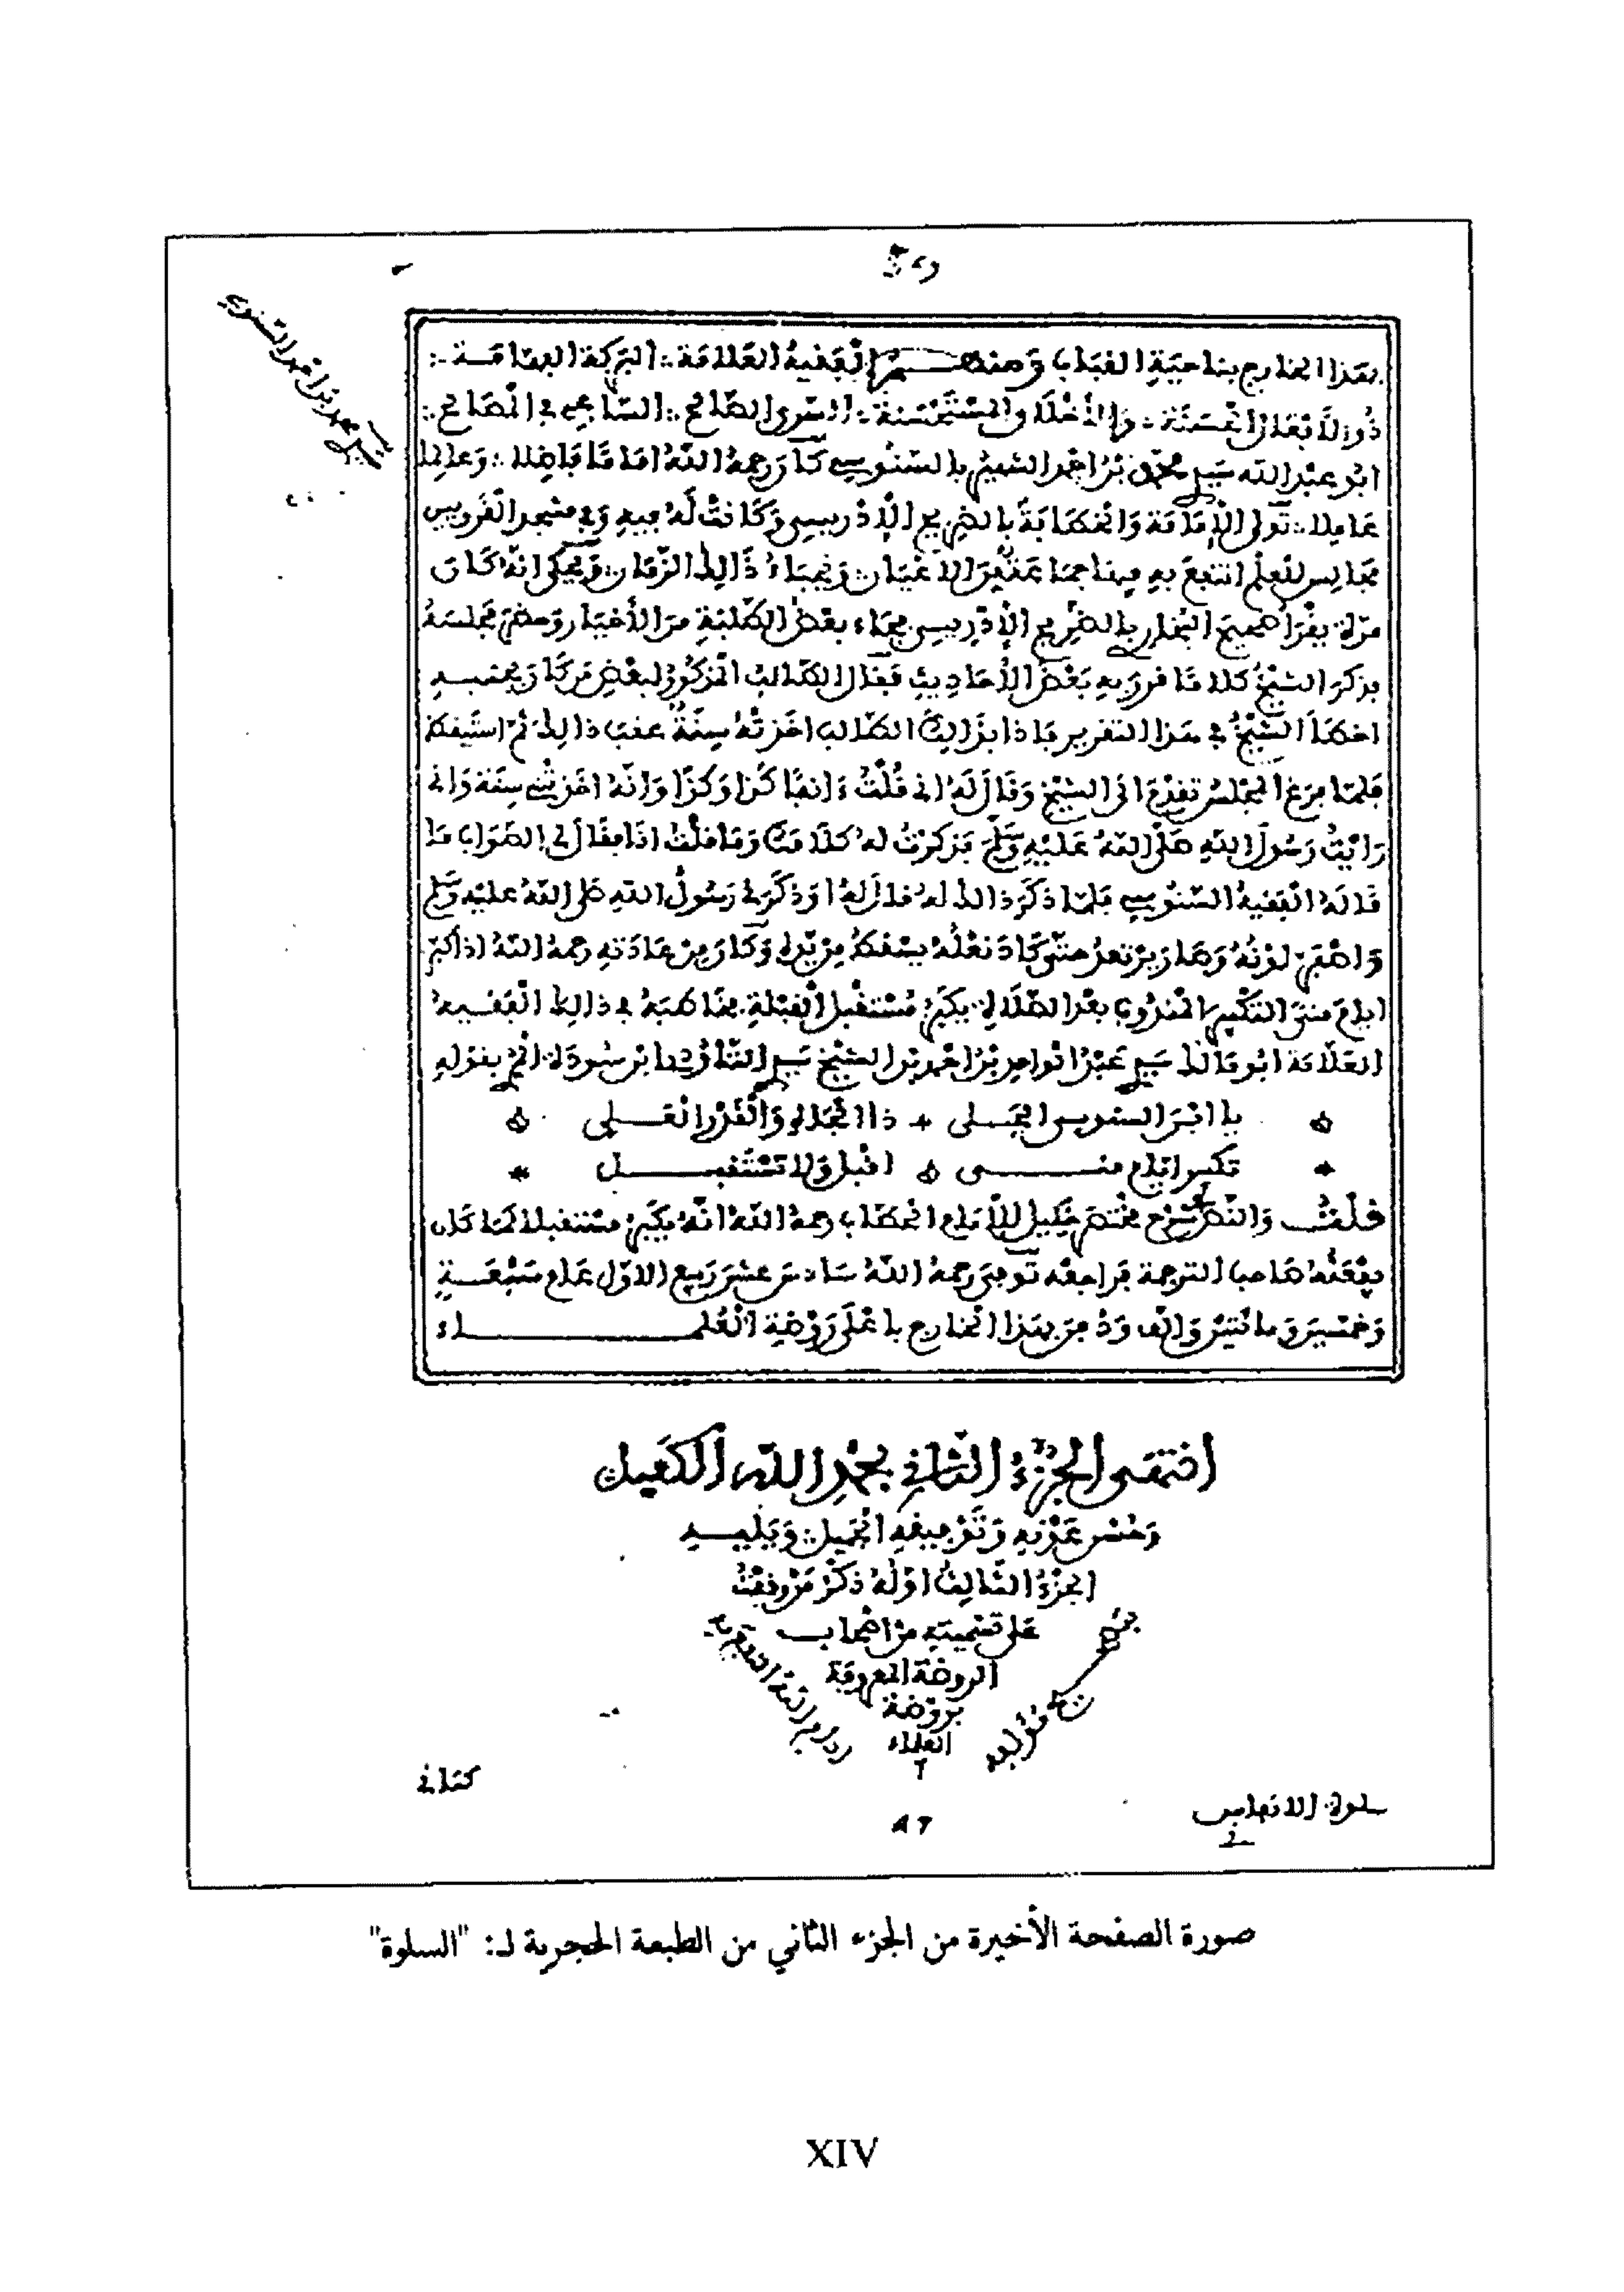 سيدي محمد بن احمد السنوسي
بهذا الخارج بناحية القباب ومنهم الفقيه العلامة البركة الفهامة
ذو الافعال الحسنة والاخلاق المستحسنة السري الصالح الساعي في المصالح
ابو عبد الله سيدي محمد بن احمد الشهير بالسنوسي كان رحمه الله اماما فاضلا وعالما
عاملا تولى الإمامة والخطابة بالضريح الإدريسي وكانت له فيه وفي مسجد القرويين
مجالس للعلم انتفع به فيها جماعة من الاعيان ونجباء ذالك الزمان ويحكى انه كان
مرة يقرأ صحيح البخاري بالضريح الإدريسي فجاء بعض الطلبة من الأخيار وحضر مجلسه
فذكر الشيخ كلاما قرر به بعض الأحاديث فقال الطالب المذكور لبعض من كان بجنبه
اخطأ الشيخ في هذا التقرير فاذا بذالك الطالب اخذته سنة عقب ذالك ثم استيقظ
فلما فرغ المجلس تقدم الى الشيخ وقال له اني قلت ءانفا كذا وكذا وانه اخذتني سنة واني
رايت رسول الله صلى الله عليه وسلم فذكرت له كلامك وما قلت انا فقال لي الصواب ما
قاله الفقيه السنوسي فلما ذكر ذالك له قال له او ذكرني رسول الله صلى الله عليه وسلم
واصفر لونه وصار يرتعد حتى كاد نعله يسقط من يده وكان من عادته رحمه الله اذا كبر
ايام منى التكبير المندوب بعد الصلاة يكبر مستقبل القبلة فخاطبه في ذالك الفقيه
العلامة ابو مالك سيدي عبد الواحد بن احمد بن الشيخ سيدي التاودي ابن سودة المري بقوله
يا ابن السنوسي الجلي ذا المجد والقدر العلي
تكبير ايام منى اقبل ولا تستقبل
قلت والنص شرح مختصر خليل للإمام الحطاب رحمه الله انه يكبر مستقبلا كما كان
يفعله صاحب الترجمة فراجعه توفي رحمه الله سادس عشر ربيع الاول عام سبعة
وخمسين ومائتين والف ودفن بهذا الخارج باعلى روضة العلماء
انتهى الجزء الثاني بحمد الله الكفيل
وحسن عونه وتوفيقه الجميل ويليه
الجزء الثالث اوله ذكر من وقفت
على تسميته من اصحاب
الروضة المعروفة
بروضة
العلماء
كتاني
سلوة الانفاس
صورة الصفحة الأخيرة من الجزء الثاني من الطبعة الحجرية لـ: "السلوة"
XIV